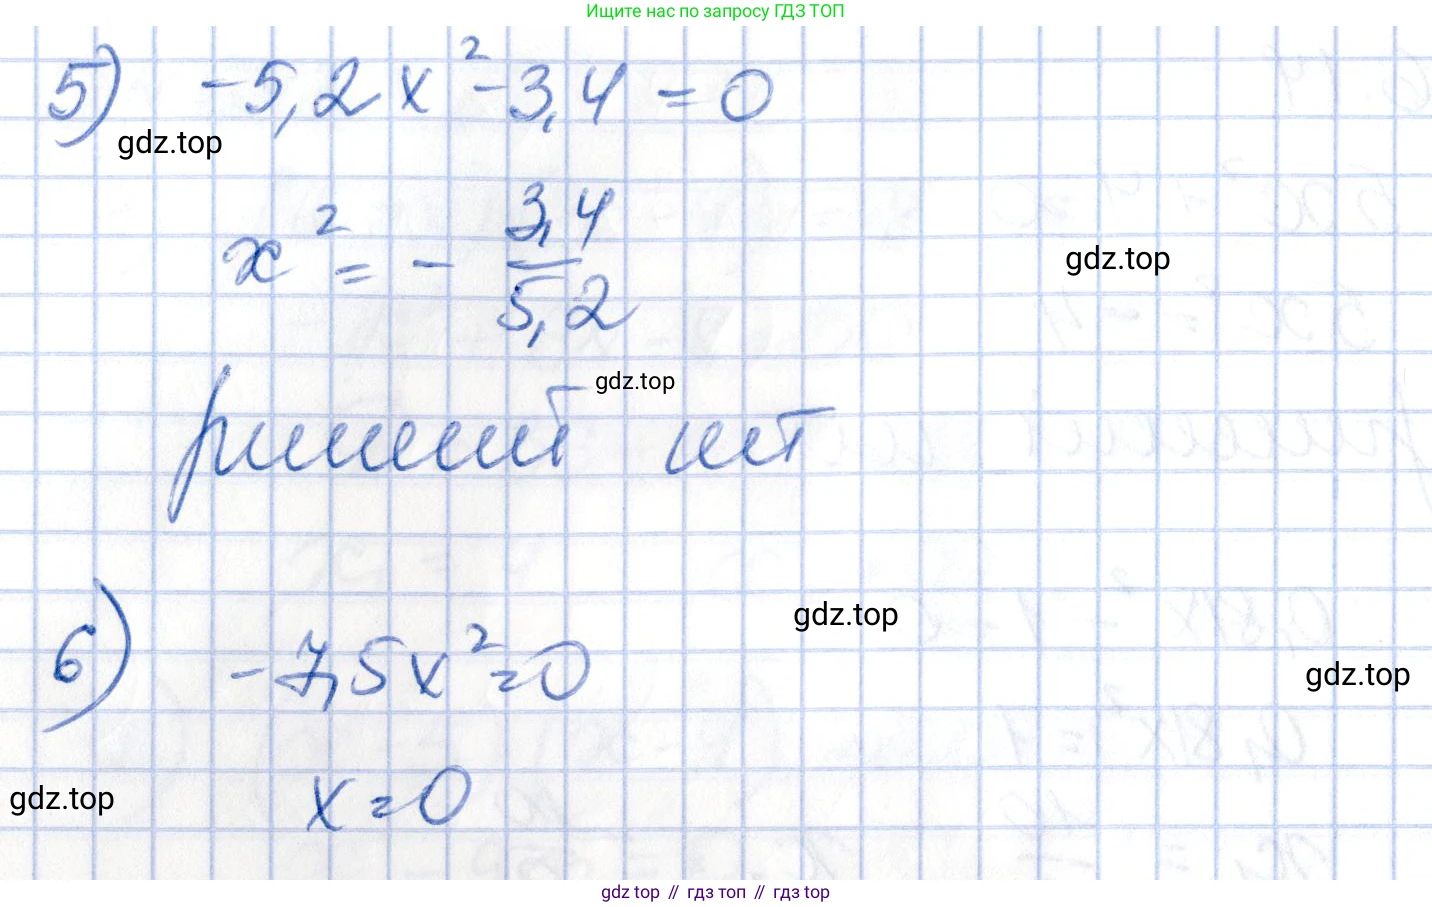 Ищите нас по запросу ГДЗ ТОП
5) -5,2x² - 3,4 = 0
gdz.top
x² = - 3,4/5,2
gdz.top
gdz.top
решений нет
gdz.top
6) -7,5x² = 0
gdz.top
x = 0
gdz.top
gdz top // гдз топ // гдз top